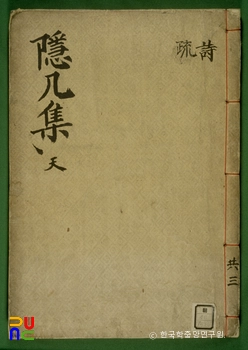 詩
疏
隱几集
天
共三
© 한국학중앙연구원